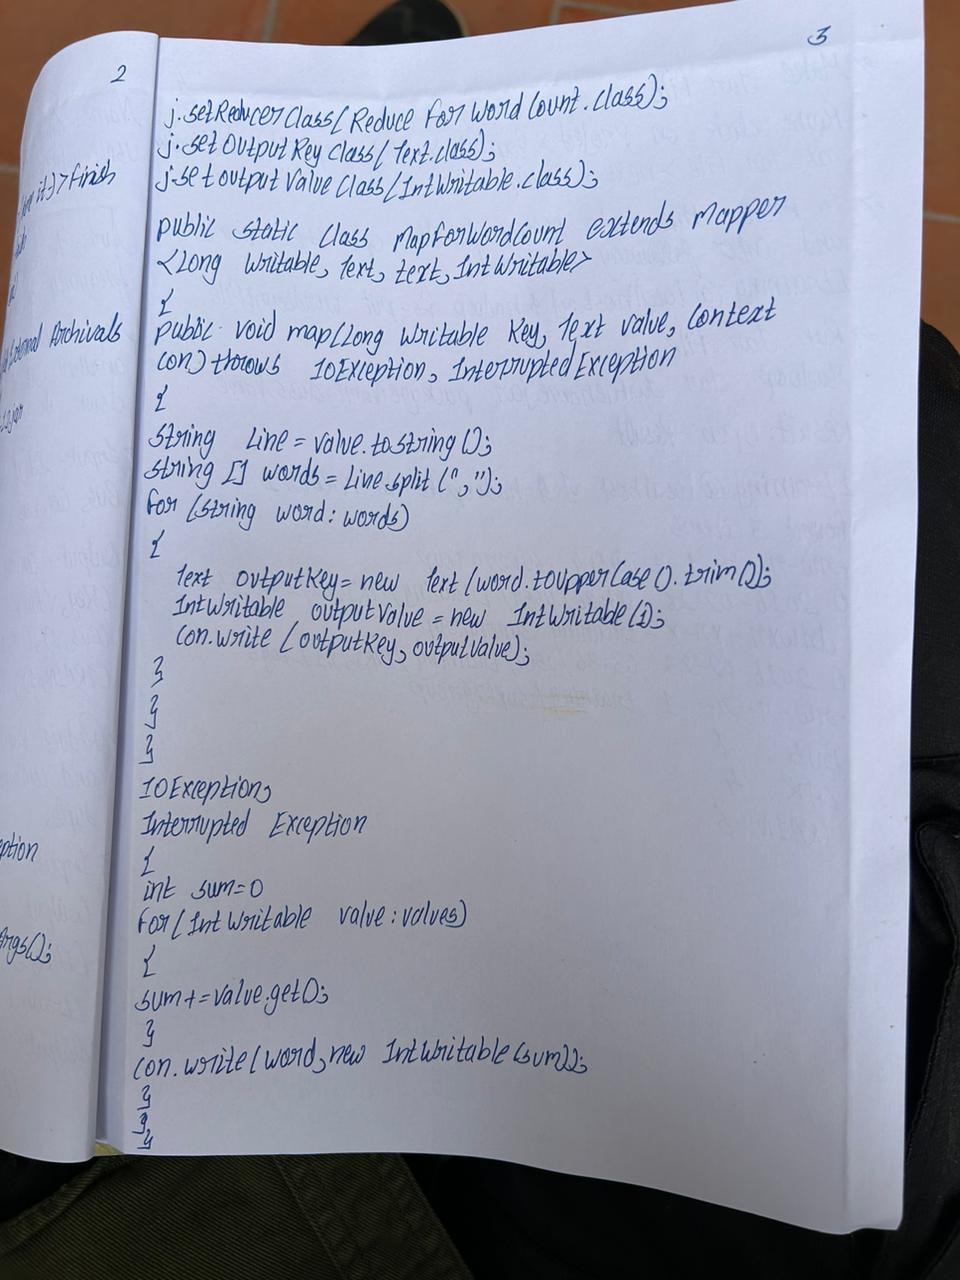 2
-->Finish
External Archivals
.jar
ption
Args();
3
j.setReducerClass(Reduce For Word Count.class);
j.set Output Key Class(Text.class);
j.set output Value Class(IntWritable.class);
public static class MapForWordCount extends Mapper
<Long Writable, Text, text, IntWritable>
{
public void map(Long Writable Key, Text value, Context
con) throws IOException, Interrupted Exception
{
String Line = value.tostring();
string [] words = Line.split (",");
For (string word: words)
{
Text outputKey= new Text(word.toupperCase().trim());
IntWritable outputValue = new IntWritable(1);
con.write (outputKey, outputValue);
}
}
}
IOException,
Interrupted Exception
{
int sum=0
For(IntWritable value:values)
{
sum+=value.get();
}
con.write(word,new IntWritable(sum));
}
}
}